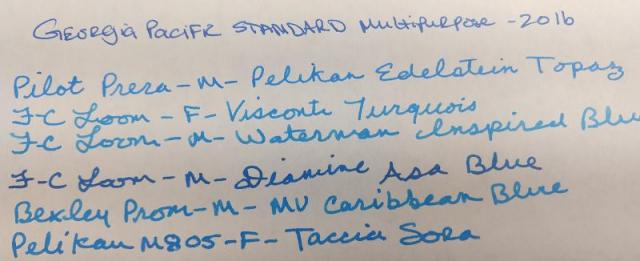 Georgia Pacific STANDARD Multipurpose - 20lb
Pilot Prera - M - Pelikan Edelstein Topaz
F-C Loom - F - Visconti Turquois
F-C Loom - M - Waterman Inspired Blu
F-C Loom - M - Diamine Asa Blue
Bexley Prom - M - MV Caribbean Blue
Pelikan M805 - F - Taccia Sora